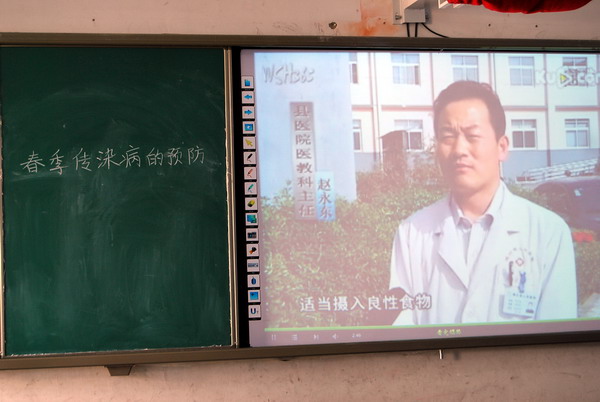 春季传染病的预防
县医院医教科主任
赵永东
适当摄入良性食物